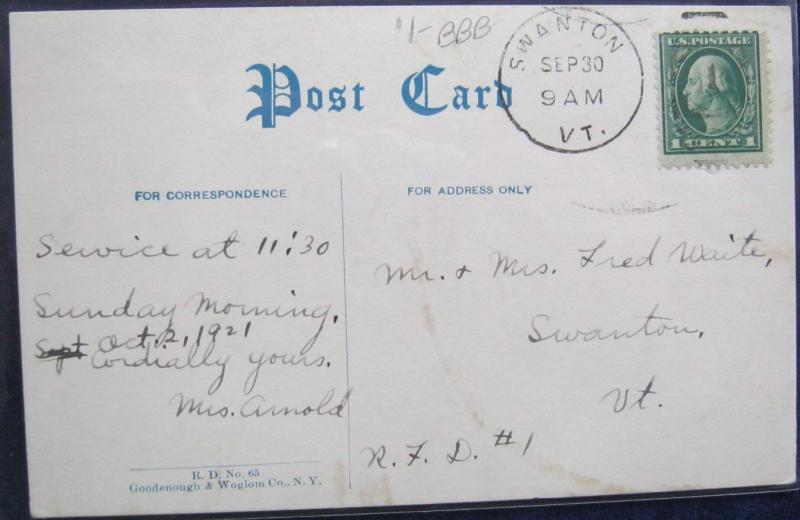 1-BBB
SWANTON
SEP 30
9 AM
VT.
U.S. POSTAGE
1 CENT 1
Post Card
FOR CORRESPONDENCE
FOR ADDRESS ONLY
Service at 11:30
Sunday Morning,
Sept Oct. 2, 1921
Cordially yours.
Mrs. Arnold
Mr. + Mrs. Fred Waite,
Swanton,
Vt.
R. F. D. #1
R. D. No. 65
Goodenough & Woglom Co., N. Y.